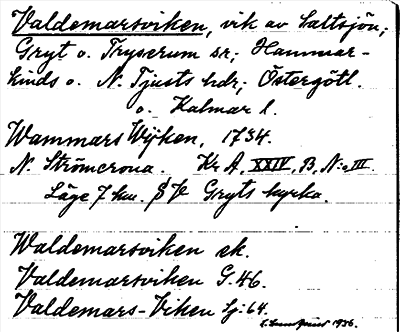 Valdemarsviken, vik av Saltsjön;
Gryt o. Tryserum sr; Hammar-
kinds o. N. Tjusts hdr; Östergötl.
o. Kalmar l.
Wammars Wijken, 1734.
N. Strömcrona. Kr A, XXIV, B, N:o III.
Läge 7 km. Gryts kyrka.
Waldemarsviken ek.
Valdemarsviken G. 46.
Valdemars-Viken Lj: 64.
1936.